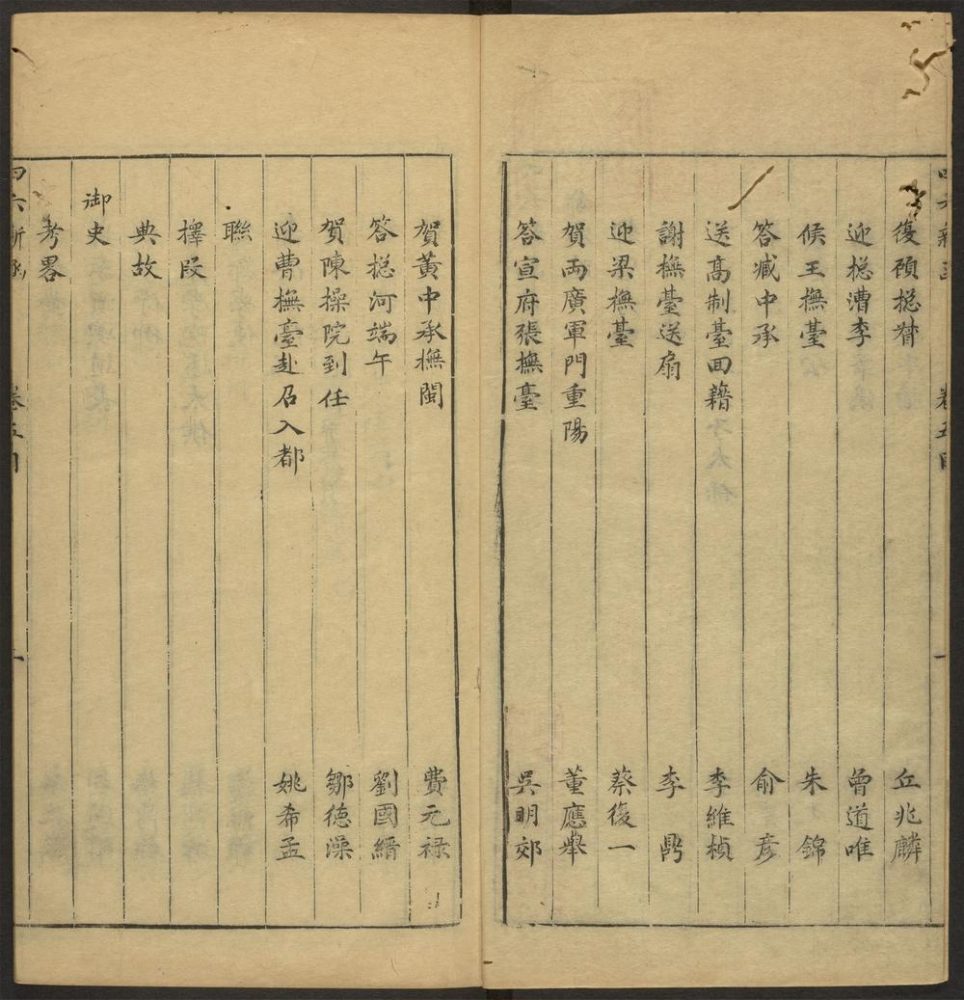 復頊揔督 丘兆麟
迎揔漕李 曾道唯
候王撫臺 朱錦
答臧中承 俞彥
送高制臺回籍 李維楨
謝撫臺送扇 李鼎
迎梁撫臺 蔡復一
賀兩廣軍門重陽 董應舉
答宣府張撫臺 吳明郊
賀黃中承撫閩 費元祿
答揔河端午 劉國縉
賀陳操院到任 鄒德溥
迎曹撫臺赴召入都 姚希孟
聯
擇段
典故
御史
考畧
四六新函 卷五目 一